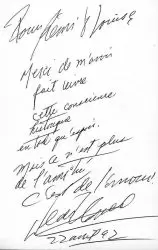 Pour Henri & Louise
Merci de m'avoir
fait vivre
cette conscience
historique
en tant qu'espoir.
Mais ce n'est plus
de l'amitié
C'est de l'amour!
22 août 92